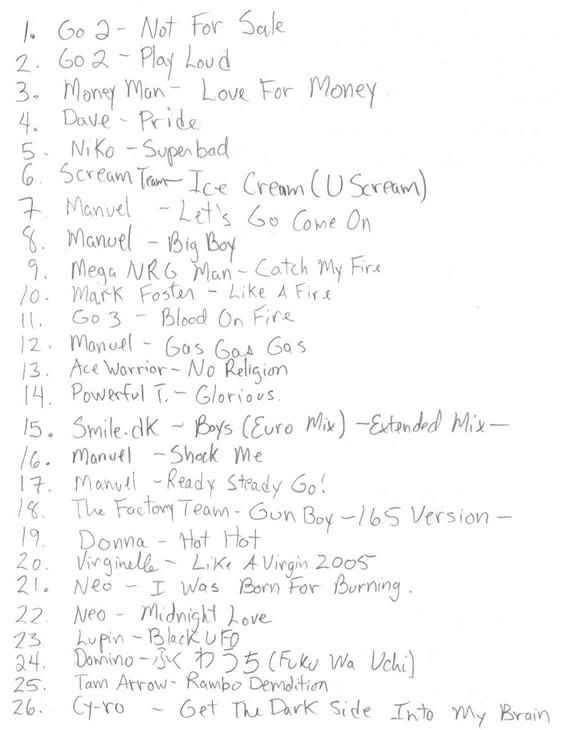 1. Go 2 - Not For Sale
2. Go 2 - Play Loud
3. Money Man - Love For Money
4. Dave - Pride
5. Niko - Superbad
6. Scream Team - Ice Cream (U Scream)
7. Manuel - Let's Go Come On
8. Manuel - Big Boy
9. Mega NRG Man - Catch My Fire
10. Mark Foster - Like A Fire
11. Go 3 - Blood On Fire
12. Manuel - Gas Gas Gas
13. Ace Warrior - No Religion
14. Powerful T. - Glorious.
15. Smile.dk - Boys (Euro Mix) -Extended Mix-
16. Manuel - Shock Me
17. Manuel - Ready Steady Go!
18. The Factory Team - Gun Boy -165 Version-
19. Donna - Hot Hot
20. Virginelle - Like A Virgin 2005
21. Neo - I Was Born For Burning.
22. Neo - Midnight Love
23 Lupin - Black UFO
24. Domino - ふく わ うち (Fuku Wa Uchi)
25. Tam Arrow - Rambo Demolition
26. Cy-ro - Get The Dark Side Into My Brain